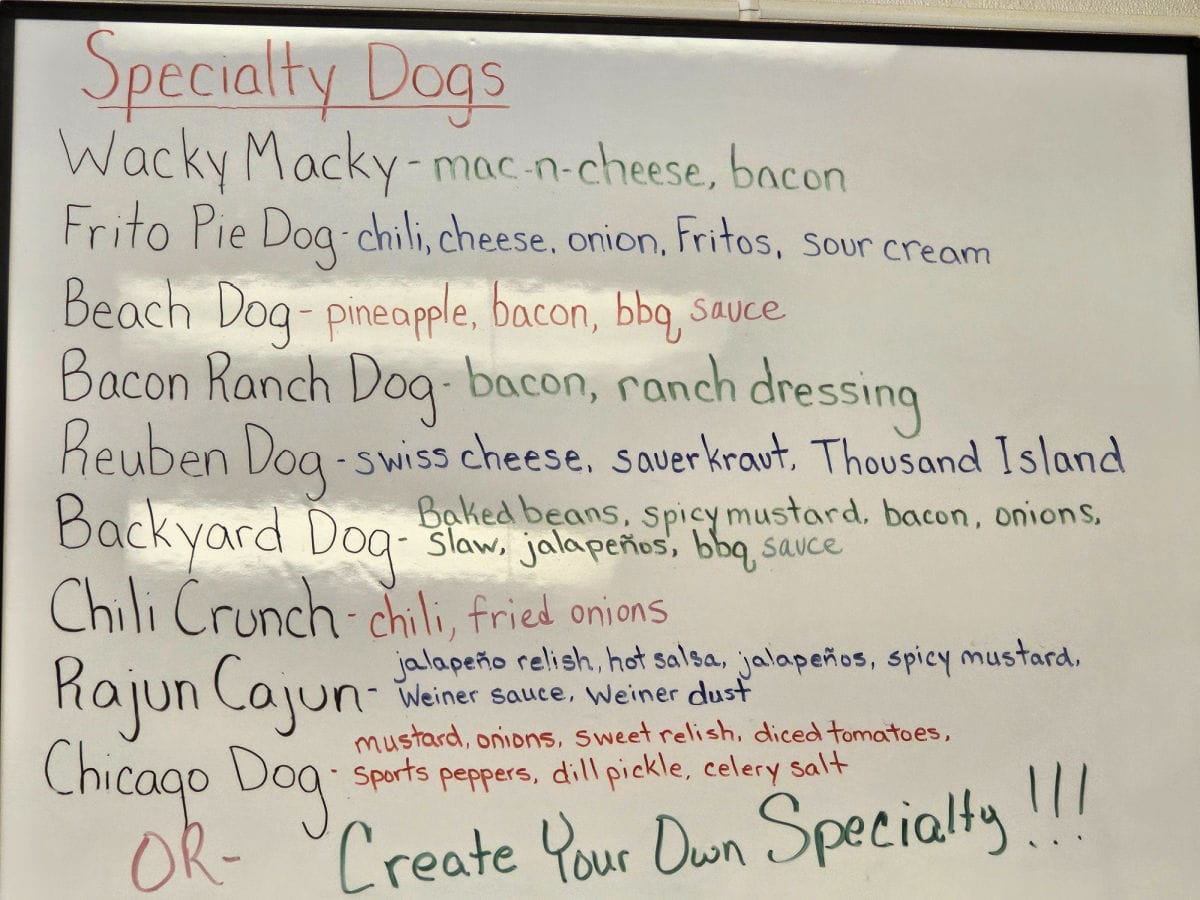 Specialty Dogs
Wacky Macky - mac-n-cheese, bacon
Frito Pie Dog - chili, cheese, onion, Fritos, sour cream
Beach Dog - pineapple, bacon, bbq sauce
Bacon Ranch Dog - bacon, ranch dressing
Reuben Dog - swiss cheese, sauerkraut, Thousand Island
Backyard Dog - Baked beans, spicy mustard, bacon, onions,
slaw, jalapeños, bbq sauce
Chili Crunch - chili, fried onions
Rajun Cajun - jalapeño relish, hot salsa, jalapeños, spicy mustard,
Weiner sauce, Weiner dust
Chicago Dog - mustard, onions, sweet relish, diced tomatoes,
sports peppers, dill pickle, celery salt
OR - Create Your Own Specialty!!!